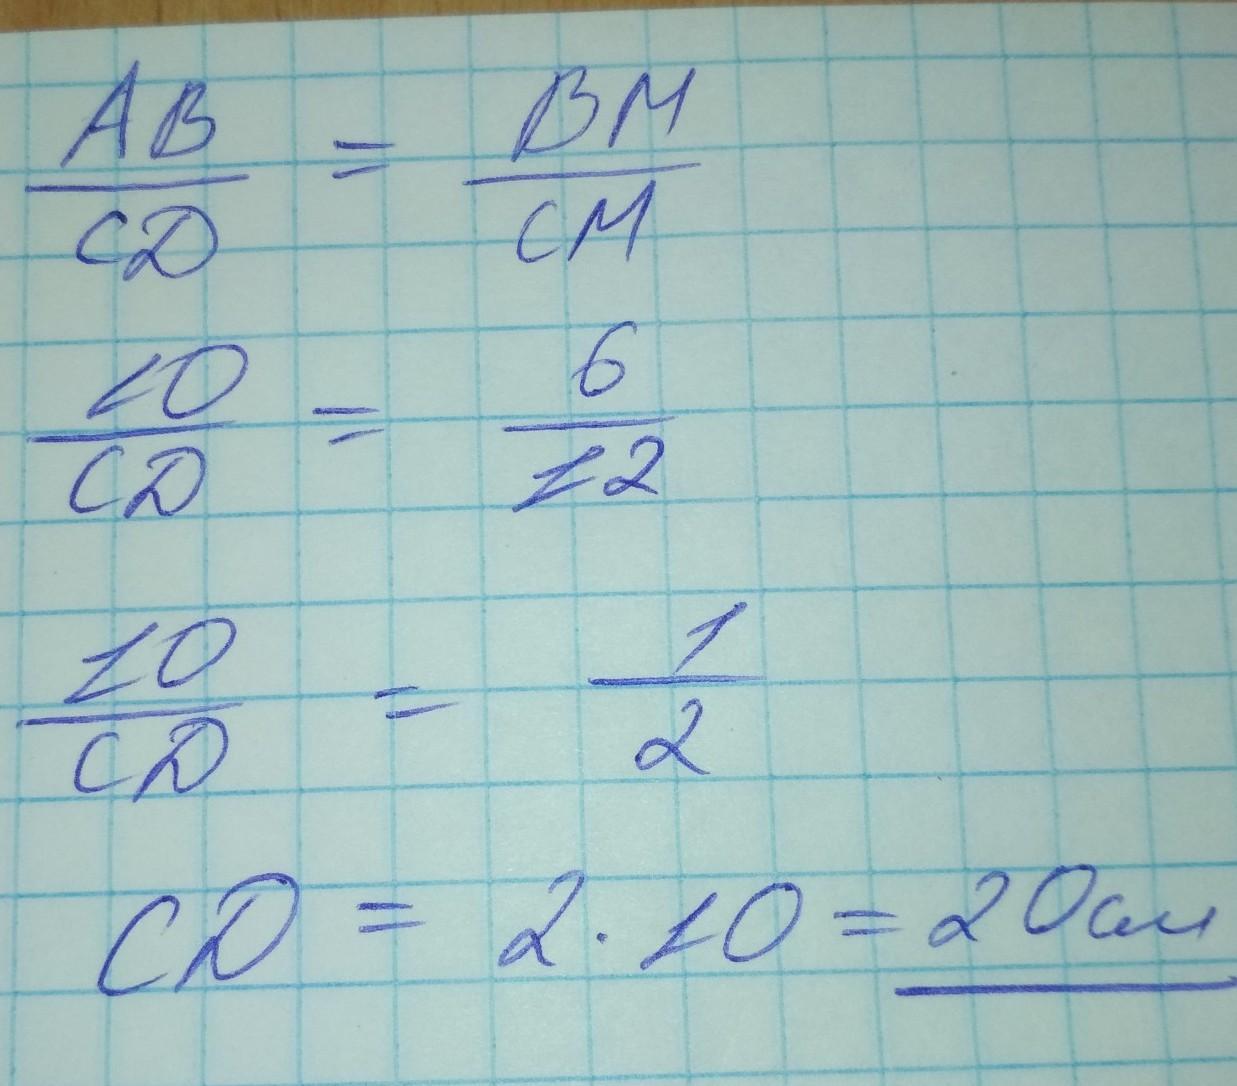 AB/CD = BM/CM
10/CD = 6/12
10/CD = 1/2
CD = 2 · 10 = 20см